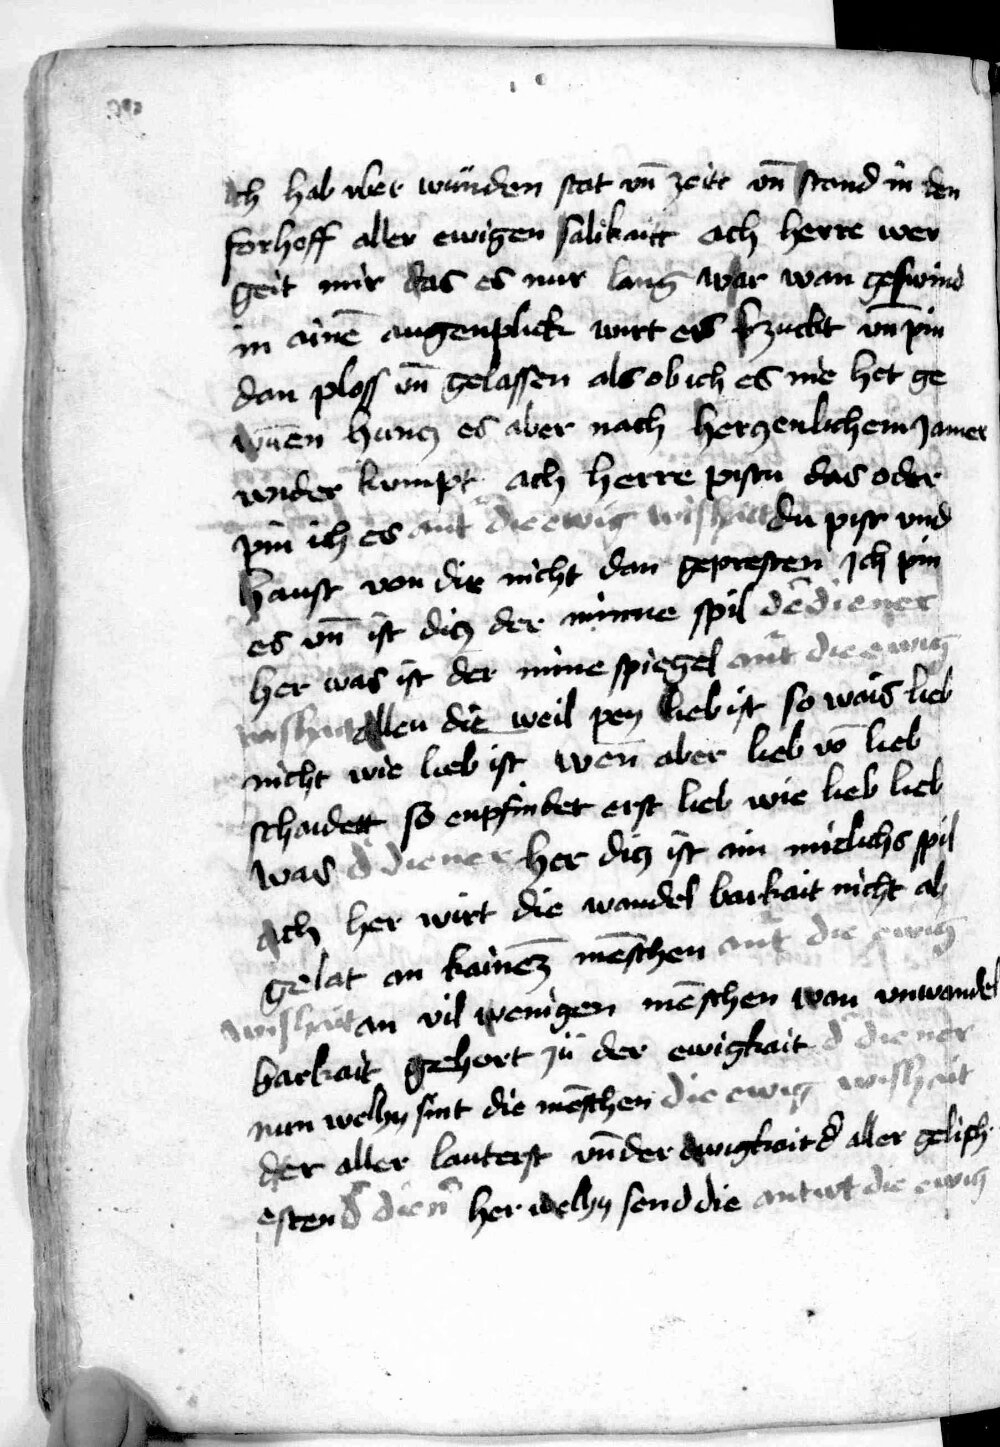 Ich hab vber wunden stat vn̄ zeitt vn̄ stand in den
forhoff aller ewigen salikaitt ach herre wer
geit mir das es nur lang war wan geswind
in ainē augenplick wirt es kzuckt vn̄ pin
dan ploss vn̄ gelassen als ob ich es nie het ge
wūen huncz es aber nach herczenlichem Jamer
wider kumpt ach herre pistu das oder
pin ich es ant̄ die ewig wishait du pist vnd
haust von dir nicht dan gepresten Ich pin
es vn̄ ist dicz der minne spil dē diener
her was ist der mine spiegel ant̄ die ewig
wishait Allen die weil pey lieb ist so wais lieb
nicht wie lieb ist wen̄ aber lieb vō lieb
schaidett so enpfindet erst lieb wie lieb lieb
was d̄ diener her dicz ist ain mielichs spil
Ach her wirt die wandel barkait nicht ab
gelat an kainem menschen ant̄ die ewig
wishait an vil wenigen mēschen wan vnwandel
barkait gehort zů der ewigkait d̄ diener
nun welhy sint die mēschen die ewig wishait
der aller lauterst vn̄ der ewigkait d̄ aller gelich
esten d̄ dien̄ her welhy send die antwt die ewig